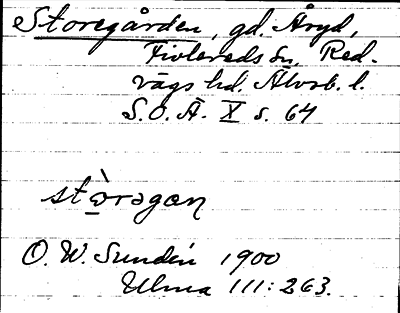 Storegården, gd. Åryd,
Fivlereds sn, Red-
vägs hd. Älvsb. l.
S. O. Ä. X s. 64
O. W. Sundén 1900
Ulma 111: 263.